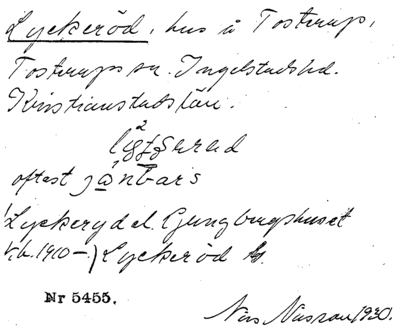 Lyckeröd, hus å Tosterup,
Tosterups sn. Ingelstads hd.
Kristianstads län.
oftast
Lyckeryd el. Ljungbergshuset
k.b. 1910–) Lyckeröd
Nr 5455.
Nils 1930.